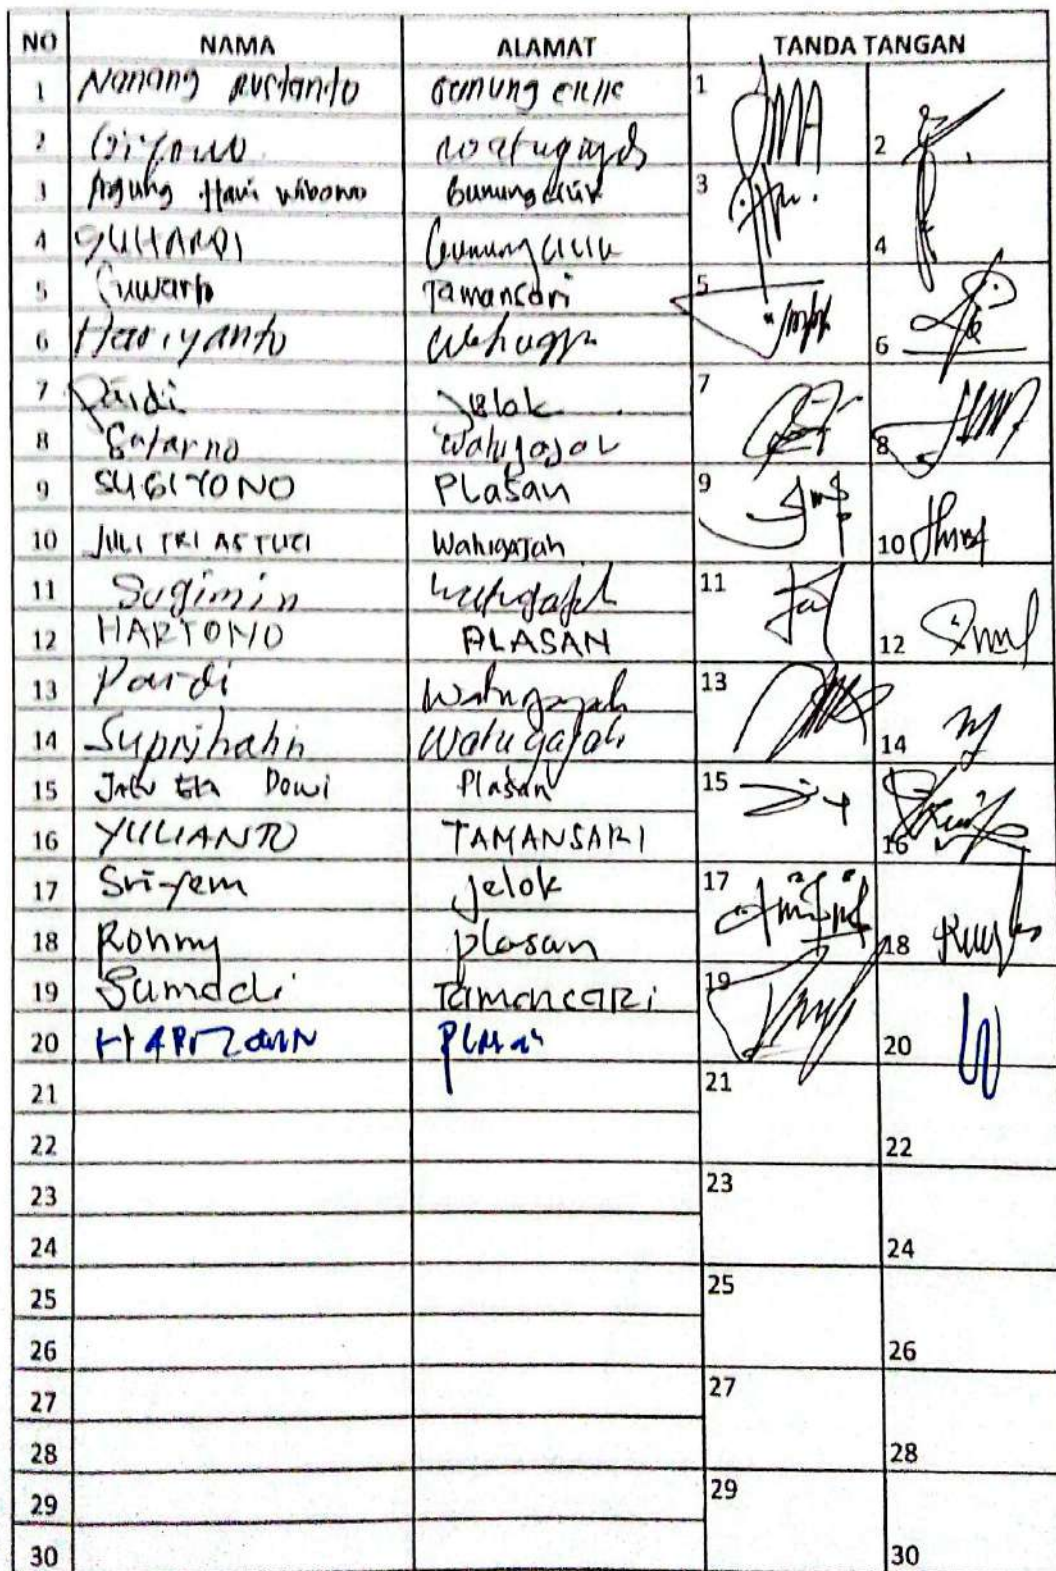 NO NAMA ALAMAT TANDA TANGAN
1 Nanang Rustanto Gunung Cilik 1
2 watugajah 2
3 Agung Hari Wibowo Gunung Cilik 3
4 SUHARDI Gunung Cilik 4
5 Suwarto Tamansari 5
6 Hariyanto 6
7 Paidi Jelok 7
8 Sutarno Watugajah 8
9 SUGIYONO PLasan 9
10 JULI TRI ASTUTI Watugajah 10
11 Sugimin watugajah 11
12 HARTONO PLASAN 12
13 Pardi Watugajah 13
14 Suprihatin Watugajah 14
15 Dewi Plasan 15
16 YULIANTO TAMANSARI 16
17 Sri-yem Jelok 17
18 Rohmy plasan 18
19 Sumadi Tamancari 19
20 20
21 21
22 22
23 23
24 24
25 25
26 26
27 27
28 28
29 29
30 30